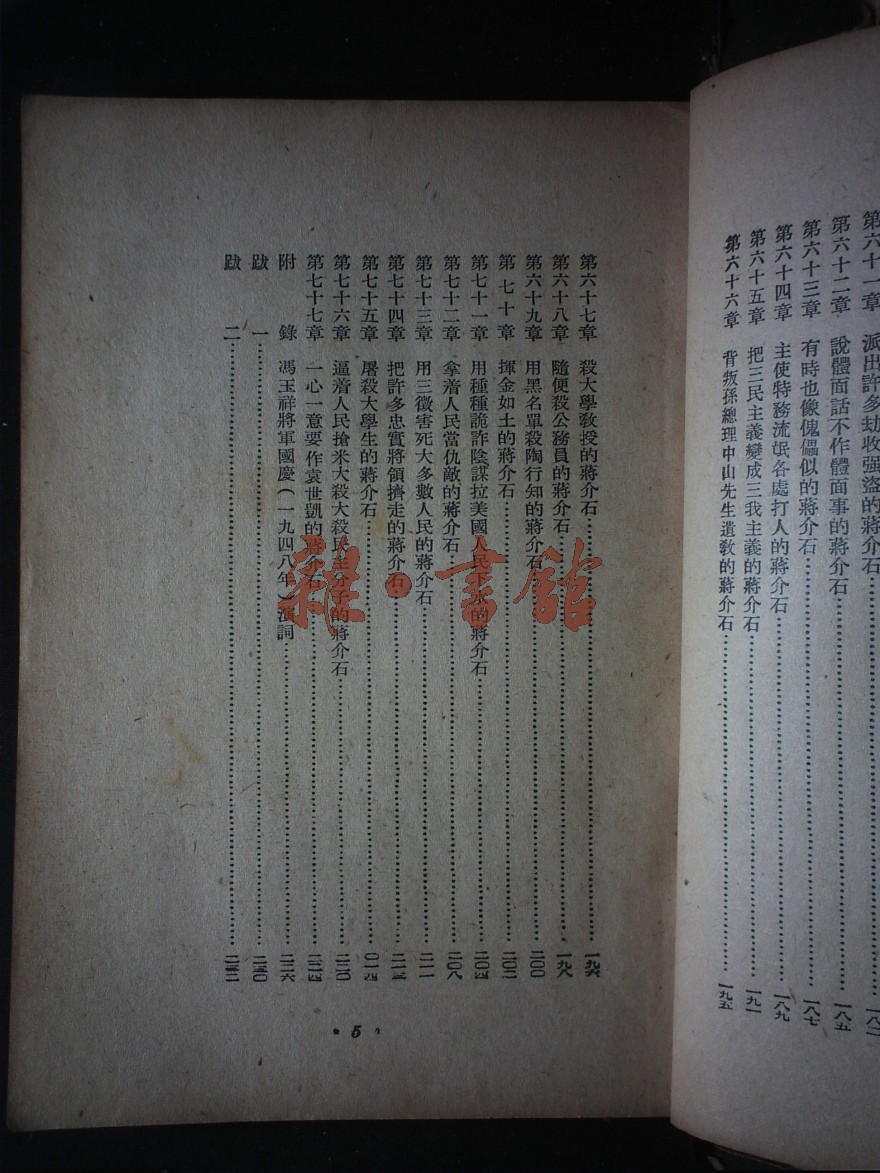 第六十一章 派出許多劫收强盜的蔣介石
第六十二章 說體面話不作體面事的蔣介石……一八五
第六十三章 有時也像傀儡似的蔣介石……一八七
第六十四章 主使特務流氓各處打人的蔣介石……一八九
第六十五章 把三民主義變成三我主義的蔣介石……一九一
第六十六章 背叛孫總理中山先生遺敎的蔣介石……一九五
第六十七章 殺大學敎授的蔣介石……一九六
第六十八章 隨便殺公務員的蔣介石……一九八
第六十九章 用黑名單殺陶行知的蔣介石……二〇〇
第七十章 揮金如土的蔣介石……二〇二
第七十一章 用種種詭詐陰謀拉美國人民下水的蔣介石……二〇四
第七十二章 拿着人民當仇敵的蔣介石……二〇八
第七十三章 用三徵害死大多數人民的蔣介石……二一一
第七十四章 把許多忠實將領擠走的蔣介石……二一三
第七十五章 屠殺大學生的蔣介石……〇一四
第七十六章 逼着人民搶米大殺大殺民主分子的蔣介石……二二〇
第七十七章 一心一意要作袁世凱的蔣介石……二二四
附錄 馮玉祥將軍國慶(一九四八年)演詞……二二六
跋一……二三〇
跋二……二三二
5
雜·書館